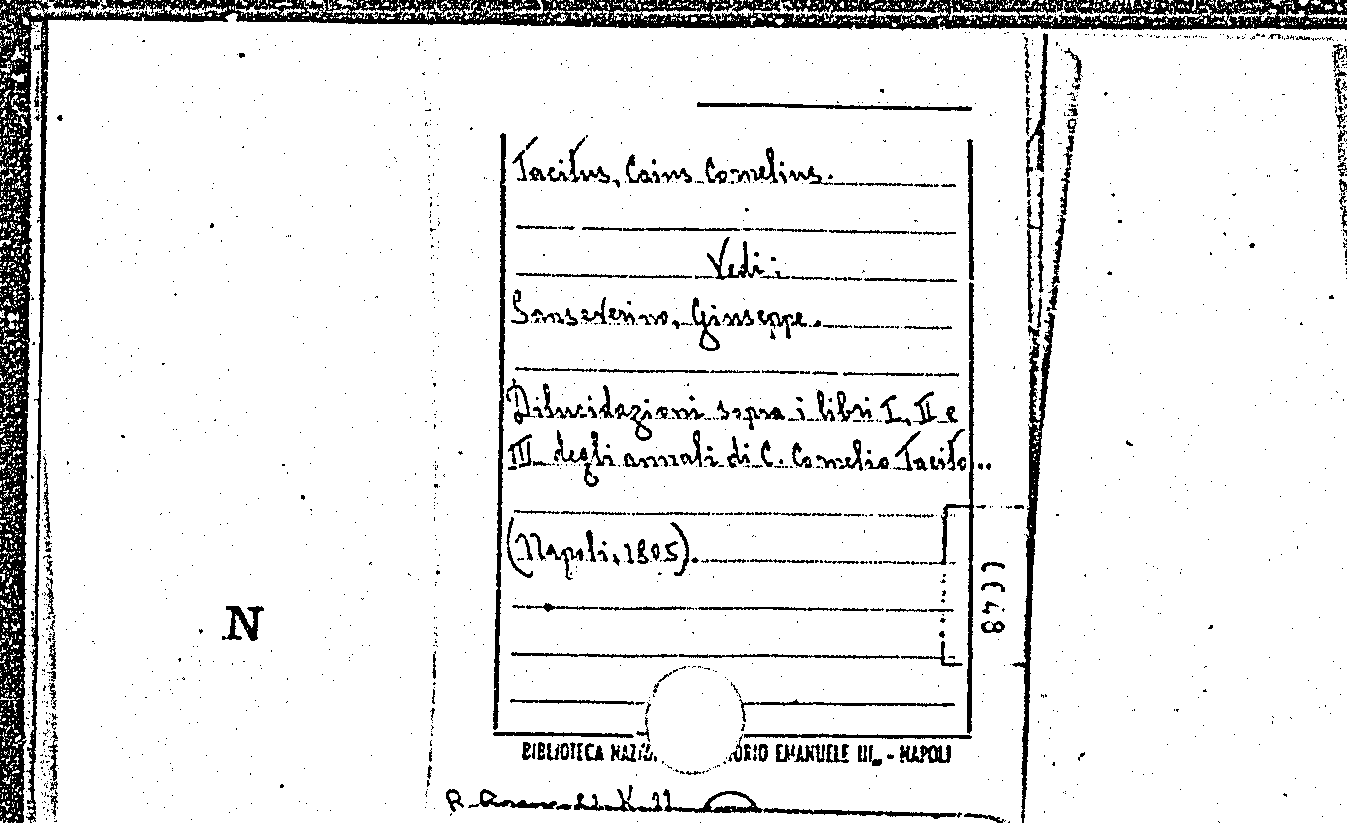 Tacitus, Caius Cornelius.
Vedi:
Sanseverino, Giuseppe.
Dilucidazioni sopra i libri I, II e
III degli annali di C. Cornelio Tacito..
(Napoli, 1805).
N
BIBLIOTECA EMANUELE III - NAPOLI